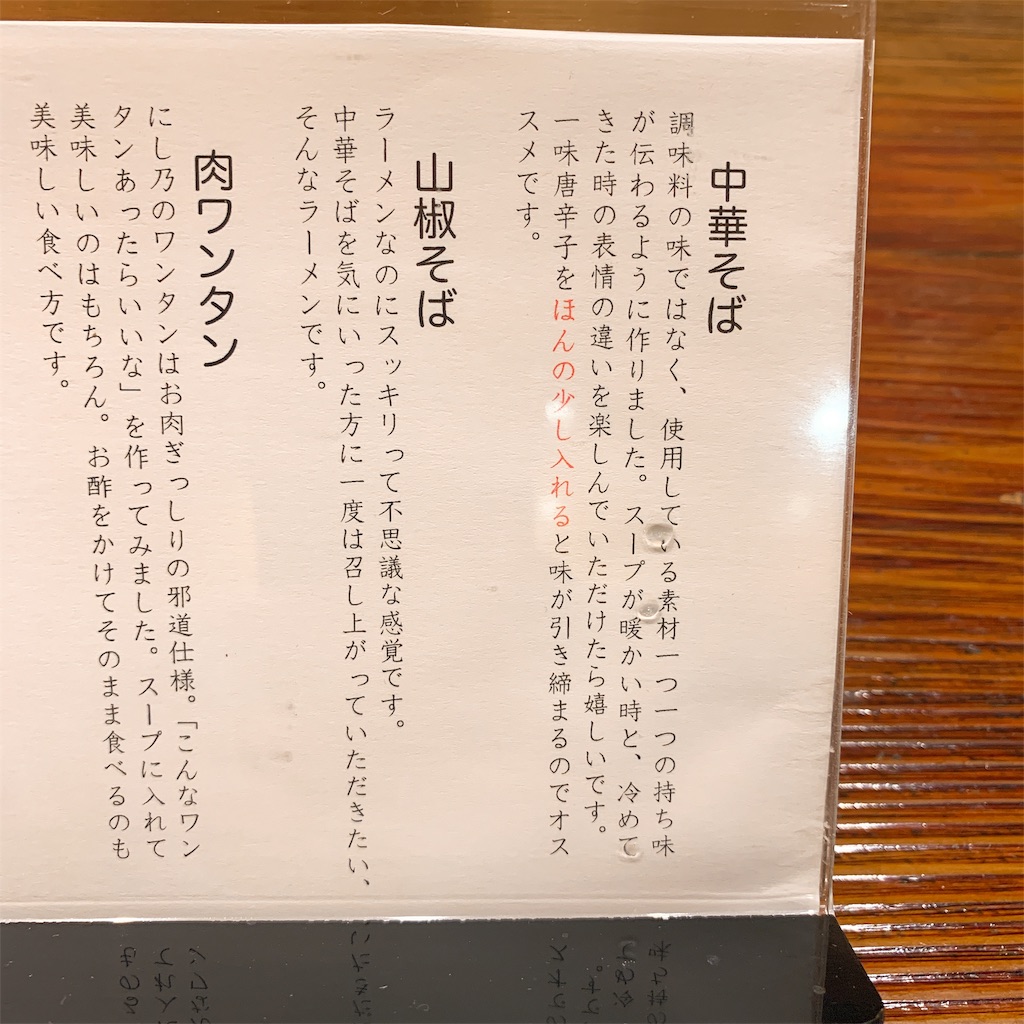 中華そば
調味料の味ではなく、使用している素材一つ一つの持ち味
が伝わるように作りました。スープが暖かい時と、冷めて
きた時の表情の違いを楽しんでいただけたら嬉しいです。
一味唐辛子をほんの少し入れると味が引き締まるのでオス
スメです。
山椒そば
ラーメンなのにスッキリって不思議な感覚です。
中華そばを気にいった方に一度は召し上がっていただきたい、
そんなラーメンです。
肉ワンタン
にし乃のワンタンはお肉ぎっしりの邪道仕様。「こんなワン
タンあったらいいな」を作ってみました。スープに入れて
美味しいのはもちろん。お酢をかけてそのまま食べるのも
美味しい食べ方です。